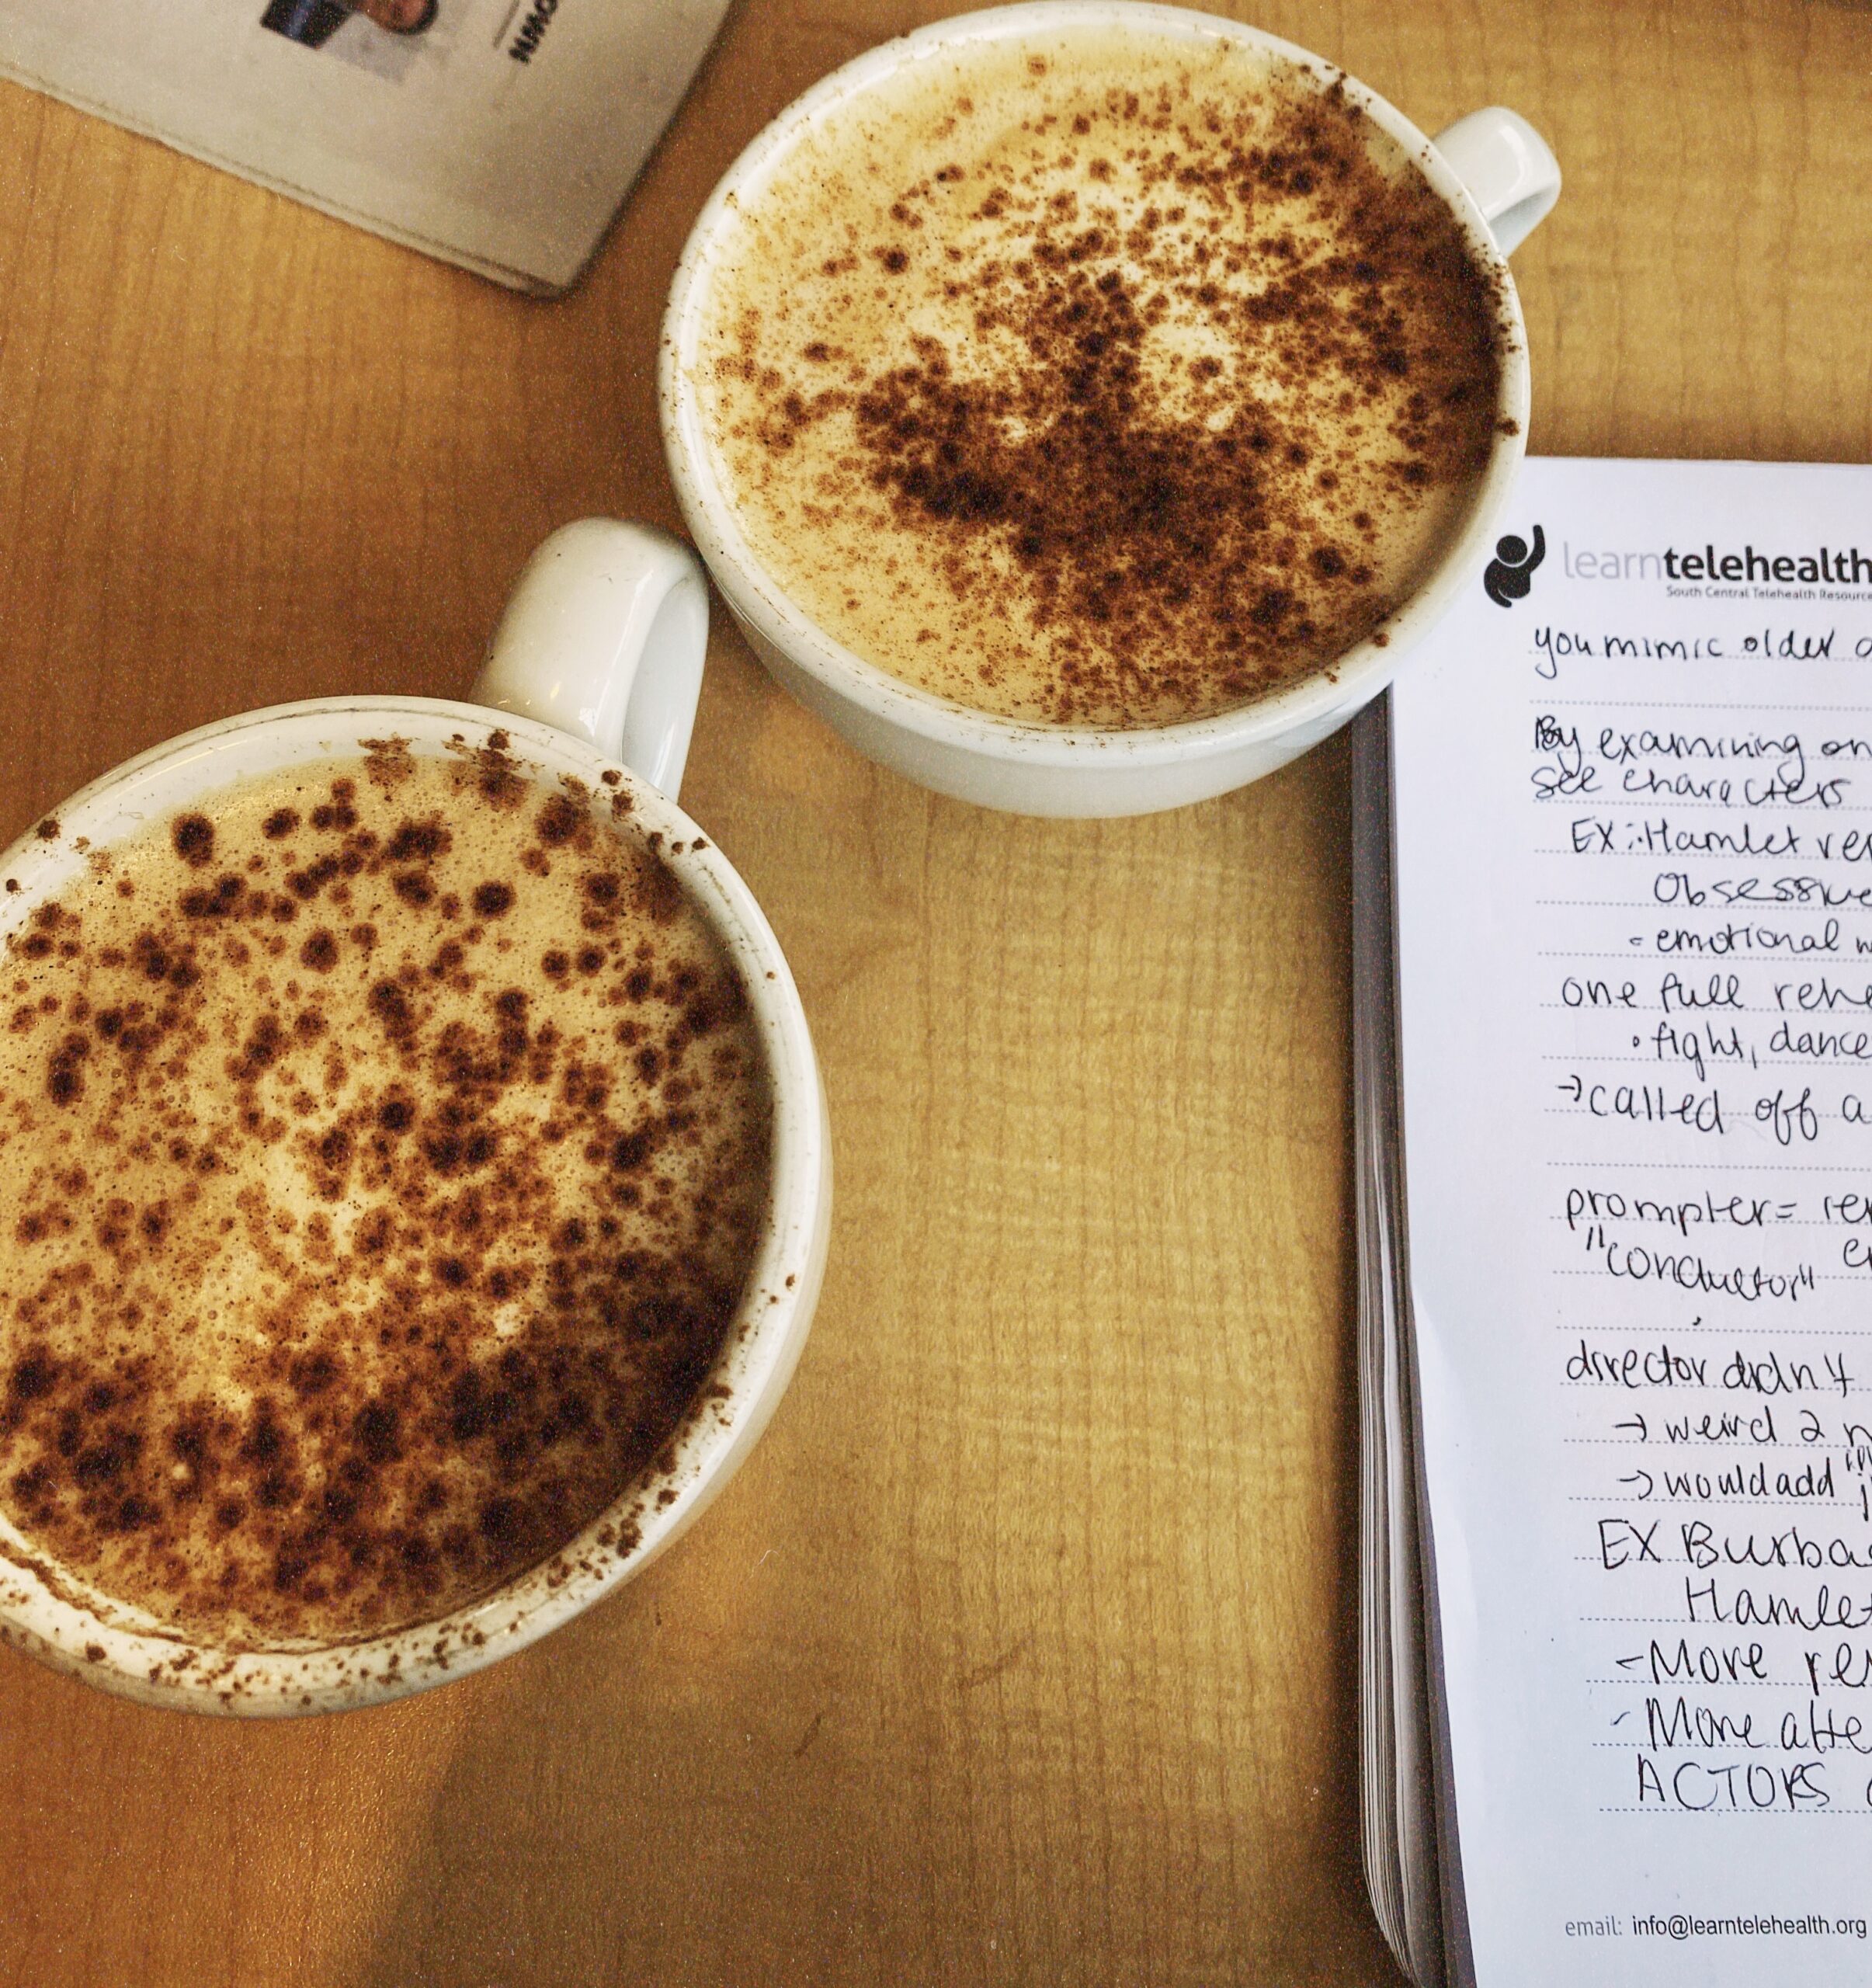 learntelehealth
South Central Telehealth Resource
you mimic older
By examining on
see characters
EX: Hamlet
Obsessive
- emotional
one full rehe
• fight, dance
→ called off a
prompter =
"conductor"
director didn't
→ weird 2
→ would add
EX Burba
Hamlet
- More
- More atte
ACTORS
email: info@learntelehealth.org